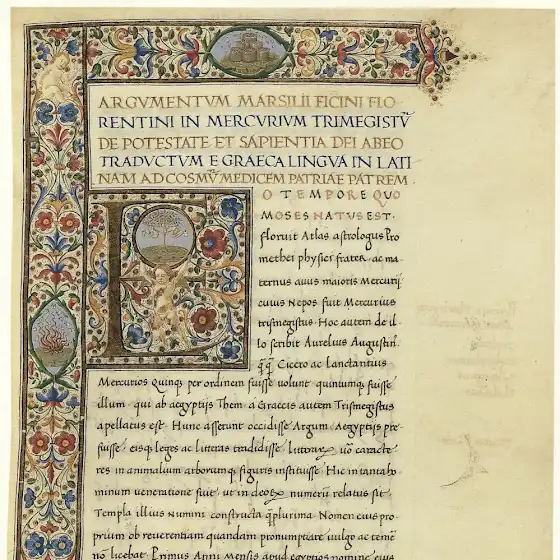 ARGVMENTVM MARSILII FICINI FLO-
RENTINI IN MERCVRIVM TRIMEGISTV̄
DE POTESTATE ET SAPIENTIA DEI AB EO
TRADVCTVM E GRAECA LINGVA IN LATI
NAM AD COSMV̄ MEDICEM PATRIAE PATREM·
E
O TEMPORE QUO
MOSES NATUS EST·
floruit Atlas astrologus Pro
methei physici frater, ac ma
ternus auus maioris Mercurij
cuius Nepos fuit Mercurius
trismegistus· Hoc autem de il
lo scribit Aurelius Augustin̄
q̄q̄ Cicero ac Lanctantius
Mercurios quinq; per ordinem fuisse uolunt quintumq; fuisse
illum qui ab aegyptijs Them a Graecis autem Trismegistus
apellatus est· Hunc asserunt occidisse Argum Aegyptijs pre
fuisse, eisq; leges ac litteras tradidisse, litterarꝝ uō caracte
res in animalium arborumq; figuris instituisse· Hic in tanta ho
minum ueneratione fuit, ut in deorꝝ numerū relatus sit
Templa illius numini constructa q̄plurima· Nomen eius pro
prium ob reuerentiam quandam pronumptiare uulgo ac temē
nō licebat· Primus Anni Mensis apud egyptios nomine eius